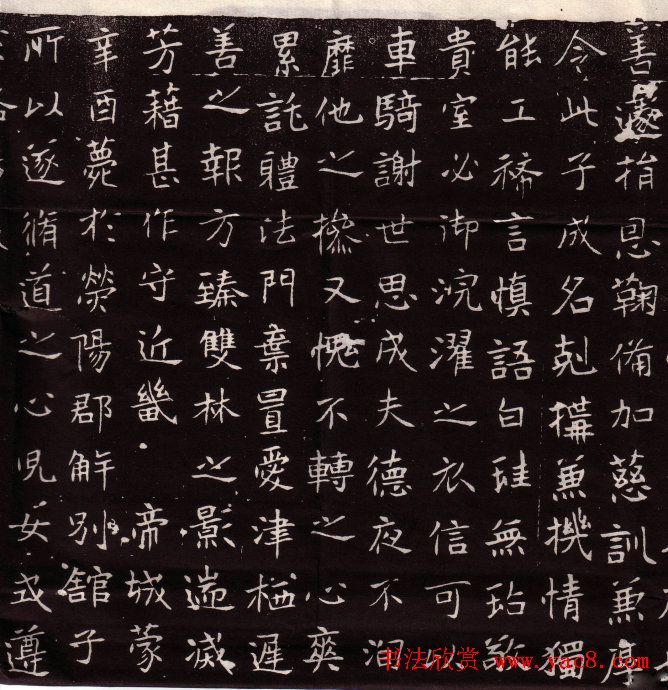 善遂捐恩鞠備加慈訓兼厚
令此子成名剋構兼機情獨
能工稀言慎語白珪無玷敬
貴室必御浣濯之衣信可
車騎謝世思成夫德夜不
靡他之操又愧不轉之心爽
累託體法門棄置愛津栖遲
善之報方臻雙林之影遄滅
芳藉甚作守近畿 帝城蒙
辛酉薨於滎陽郡解別館子
所以遂脩道之心兒女式遵
书法欣赏 www.yac8.com